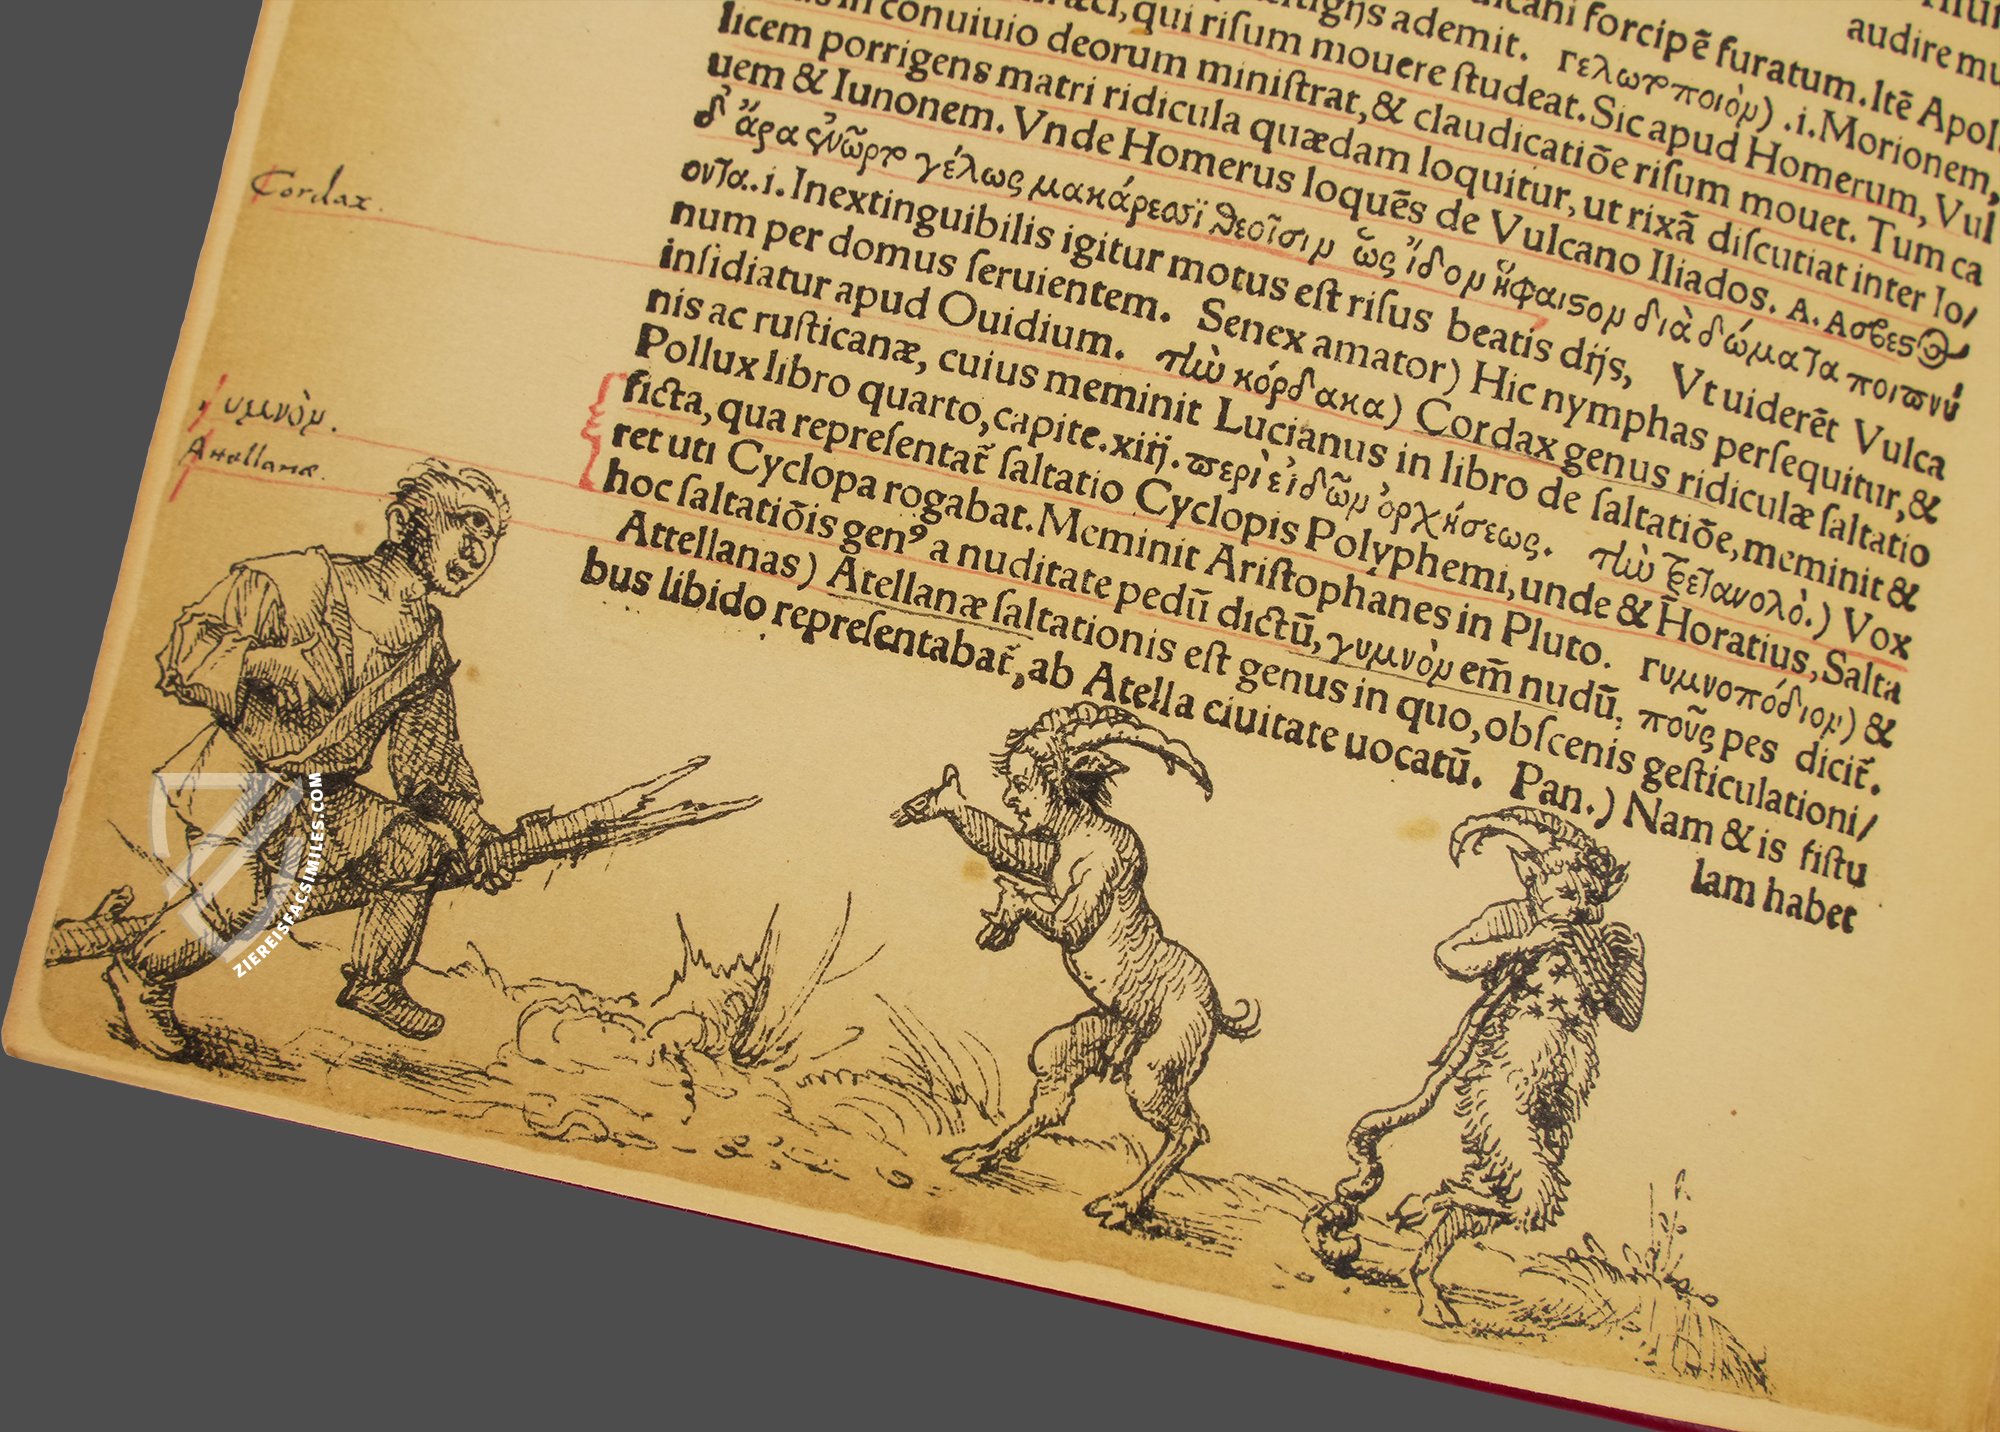 audire mu
forcipẽ furatum. Itẽ Apol
ademit. Γελωτοποιὸν) .i. Morionem,
qui riſum mouere ſtudeat. Sic apud Homerum, Vul
in conuiuio deorum miniſtrat, & claudicatiõe riſum mouet. Tum ca
licem porrigens matri ridicula quædam loquitur, ut rixã diſcutiat inter Io/
uem & Iunonem. Vnde Homerus loquẽs de Vulcano Iliados. Α. Ασβεςος
δ' ἄρα ἐνῶρτο γέλως μακάρεσσϊ θεοῖσιν ὥς ἴδον ἥφαιςον διὰ δώματα ποιπνύ
οντα..i. Inextinguibilis igitur motus eſt riſus beatis dijs, Vt uiderẽt Vulca
num per domus ſeruientem. Senex amator) Hic nymphas perſequitur, &
inſidiatur apud Ouidium. τὴν κόρδακα) Cordax genus ridiculæ ſaltatio
nis ac ruſticanæ, cuius meminit Lucianus in libro de ſaltatiõe, meminit &
Pollux libro quarto, capite. xiiij. περὶ εἰδῶν ὀρχήσεως. τὴν τρετανολὸ.) Vox
ficta, qua repreſentat̃ ſaltatio Cyclopis Polyphemi, unde & Horatius, Salta
ret uti Cyclopa rogabat. Meminit Ariſtophanes in Pluto. Γυμνοπόδιον) &
hoc ſaltatiõis genꝰ a nuditate pedũ dictũ, γυμνὸν em̃ nudũ, ποῦς pes dicit̃.
Attellanas) Atellanæ ſaltationis eſt genus in quo, obſcenis geſticulationi/
bus libido repreſentabat̃, ab Atella ciuitate uocatũ. Pan.) Nam & is fiſtu
lam habet
Cordax.
γυμνὸν.
Atellanæ.
ZIEREISFACSIMILES.COM